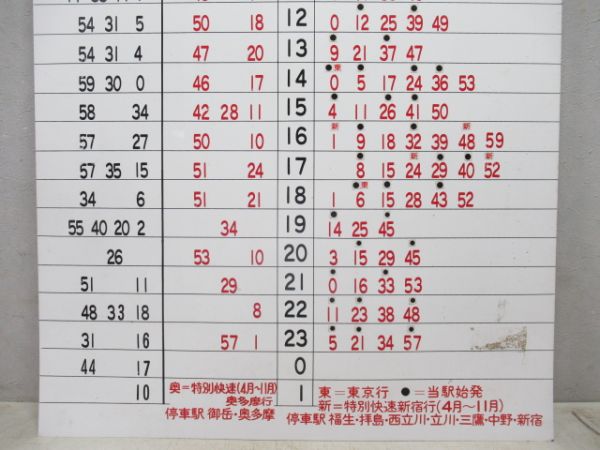 54 31 5 50 18 12 0 12 25 39 49
54 31 4 47 20 13 9 21 37 47
東
59 30 0 46 17 14 0 5 17 24 36 53
58 34 42 28 11 15 4 11 26 41 50
新 新
57 27 50 10 16 1 9 18 32 39 48 59
新 新
57 35 15 51 24 17 8 15 24 29 40 52
東
34 6 51 21 18 1 6 15 28 43 52
55 40 20 2 34 19 14 25 45
26 53 10 20 3 15 29 45
51 11 29 21 0 16 33 53
48 33 18 8 22 11 23 38 48
31 16 57 1 23 5 21 34 57
44 17 0
10 1
奥=特別快速(4月~11月)
奥多摩行
停車駅 御岳・奥多摩
東=東京行 ●=当駅始発
新=特別快速新宿行(4月~11月)
停車駅 福生・拝島・西立川・立川・三鷹・中野・新宿